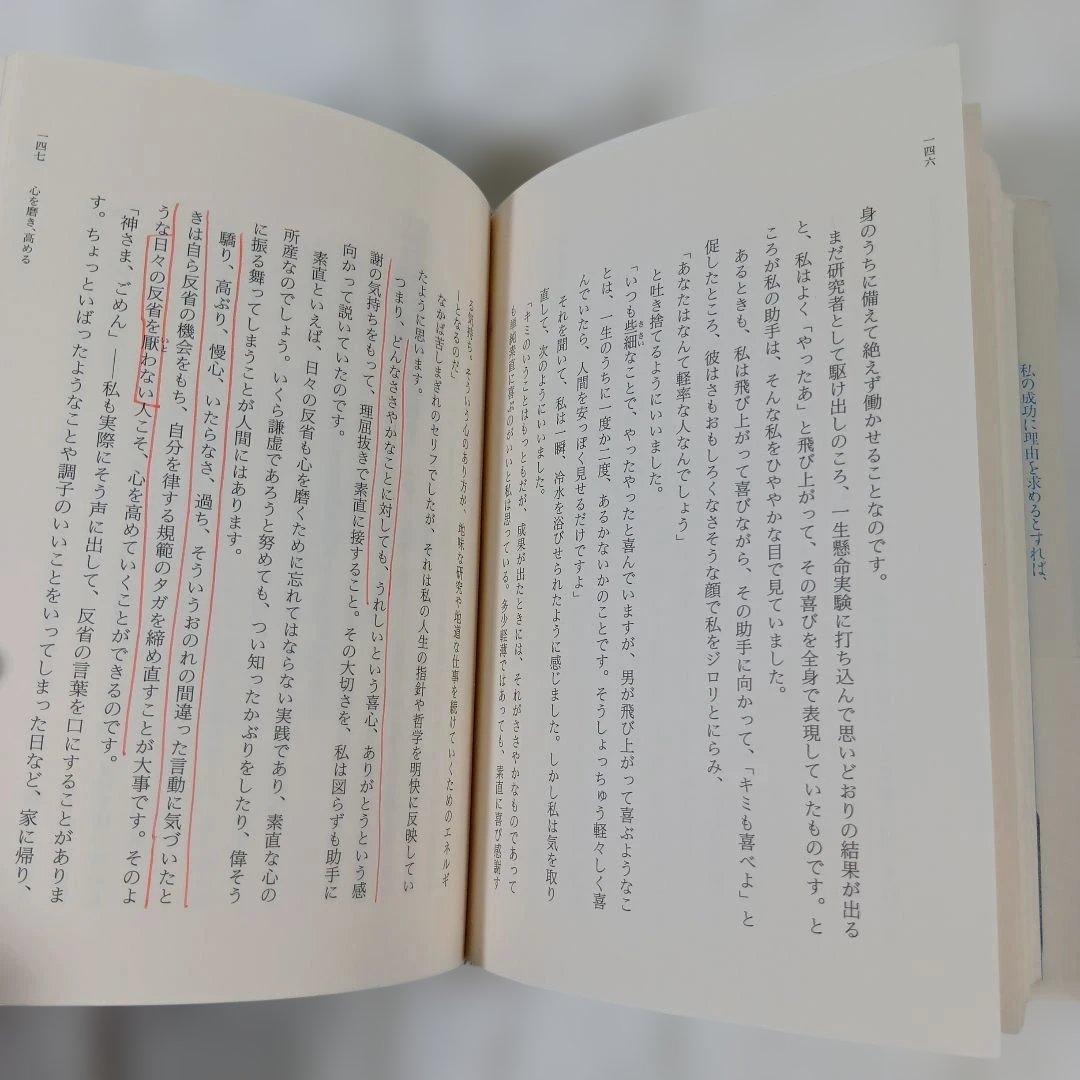 一四六
身のうちに備えて絶えず働かせることなのです。
まだ研究者として駆け出しのころ、一生懸命実験に打ち込んで思いどおりの結果が出る
と、私はよく「やったあ」と飛び上がって、その喜びを全身で表現していたものです。と
ころが私の助手は、そんな私をひややかな目で見ていました。
あるときも、私は飛び上がって喜びながら、その助手に向かって、「キミも喜べよ」と
促したところ、彼はさもおもしろくなさそうな顔で私をジロリとにらみ、
「あなたはなんて軽率な人なんでしょう」
と吐き捨てるようにいいました。
「いつも些細なことで、やったやったと喜んでいますが、男が飛び上がって喜ぶようなこ
とは、一生のうちに一度か二度、あるかないかのことです。そうしょっちゅう軽々しく喜
んでいたら、人間を安っぽく見せるだけですよ」
それを聞いて、私は一瞬、冷水を浴びせられたように感じました。しかし私は気を取り
直して、次のようにいいました。
「キミのいうことはもっともだが、成果が出たときには、それがささやかなものであって
も単純素直に喜ぶのがいいと私は思っている。多少軽薄ではあっても、素直に喜び感謝す
る気持ち、そういう心のあり方が、地味な研究や地道な仕事を続けていくためのエネルギ
ーとなるのだ」
なかば苦しまぎれのセリフでしたが、それは私の人生の指針や哲学を明快に反映してい
たように思います。
つまり、どんなささやかなことに対しても、うれしいという喜心、ありがとうという感
謝の気持ちをもって、理屈抜きで素直に接すること。その大切さを、私は図らずも助手に
向かって説いていたのです。
素直といえば、日々の反省も心を磨くために忘れてはならない実践であり、素直な心の
所産なのでしょう。いくら謙虚であろうと努めても、つい知ったかぶりをしたり、偉そう
に振る舞ってしまうことが人間にはあります。
驕り、高ぶり、慢心、いたらなさ、過ち、そういうおのれの間違った言動に気づいたと
きは自ら反省の機会をもち、自分を律する規範のタガを締め直すことが大事です。そのよ
うな日々の反省を厭わない人こそ、心を高めていくことができるのです。
「神さま、ごめん」――私も実際にそう声に出して、反省の言葉を口にすることがありま
す。ちょっといばったようなことや調子のいいことをいってしまった日など、家に帰り、
一四七　心を磨き、高める
私の成功に理由を求めるとすれば、